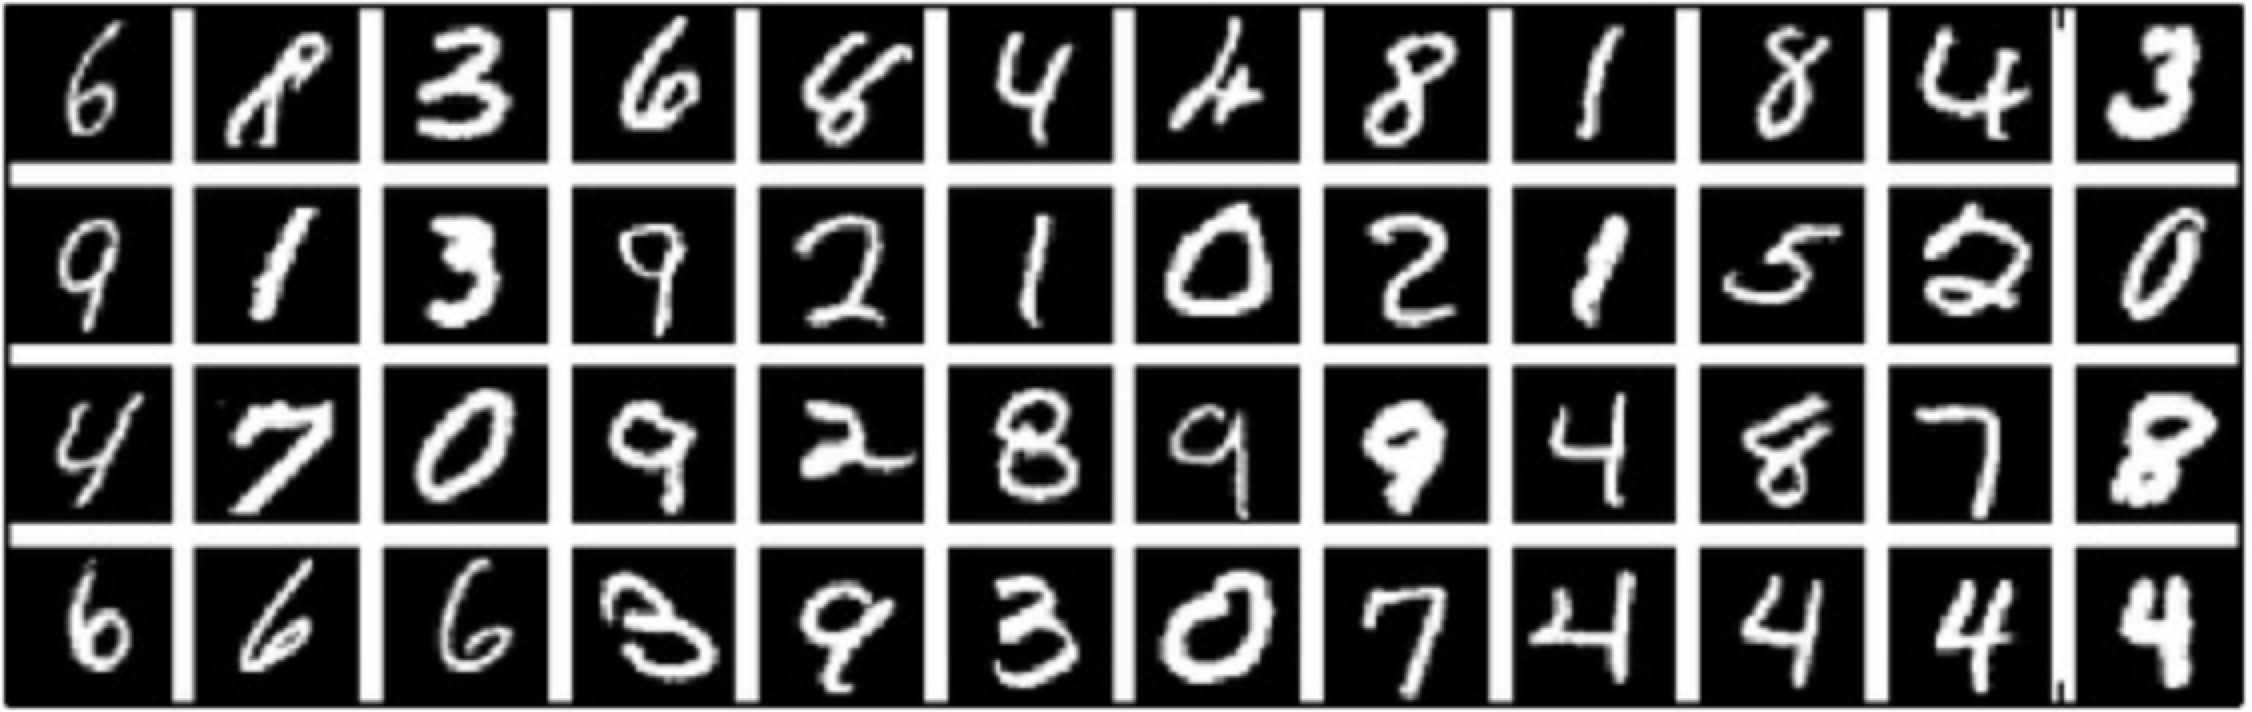 6 8 3 6 8 4 4 8 1 8 4 3
9 1 3 9 2 1 0 2 1 5 2 0
4 7 0 9 2 8 9 9 4 8 7 8
6 6 6 3 9 3 0 7 4 4 4 4